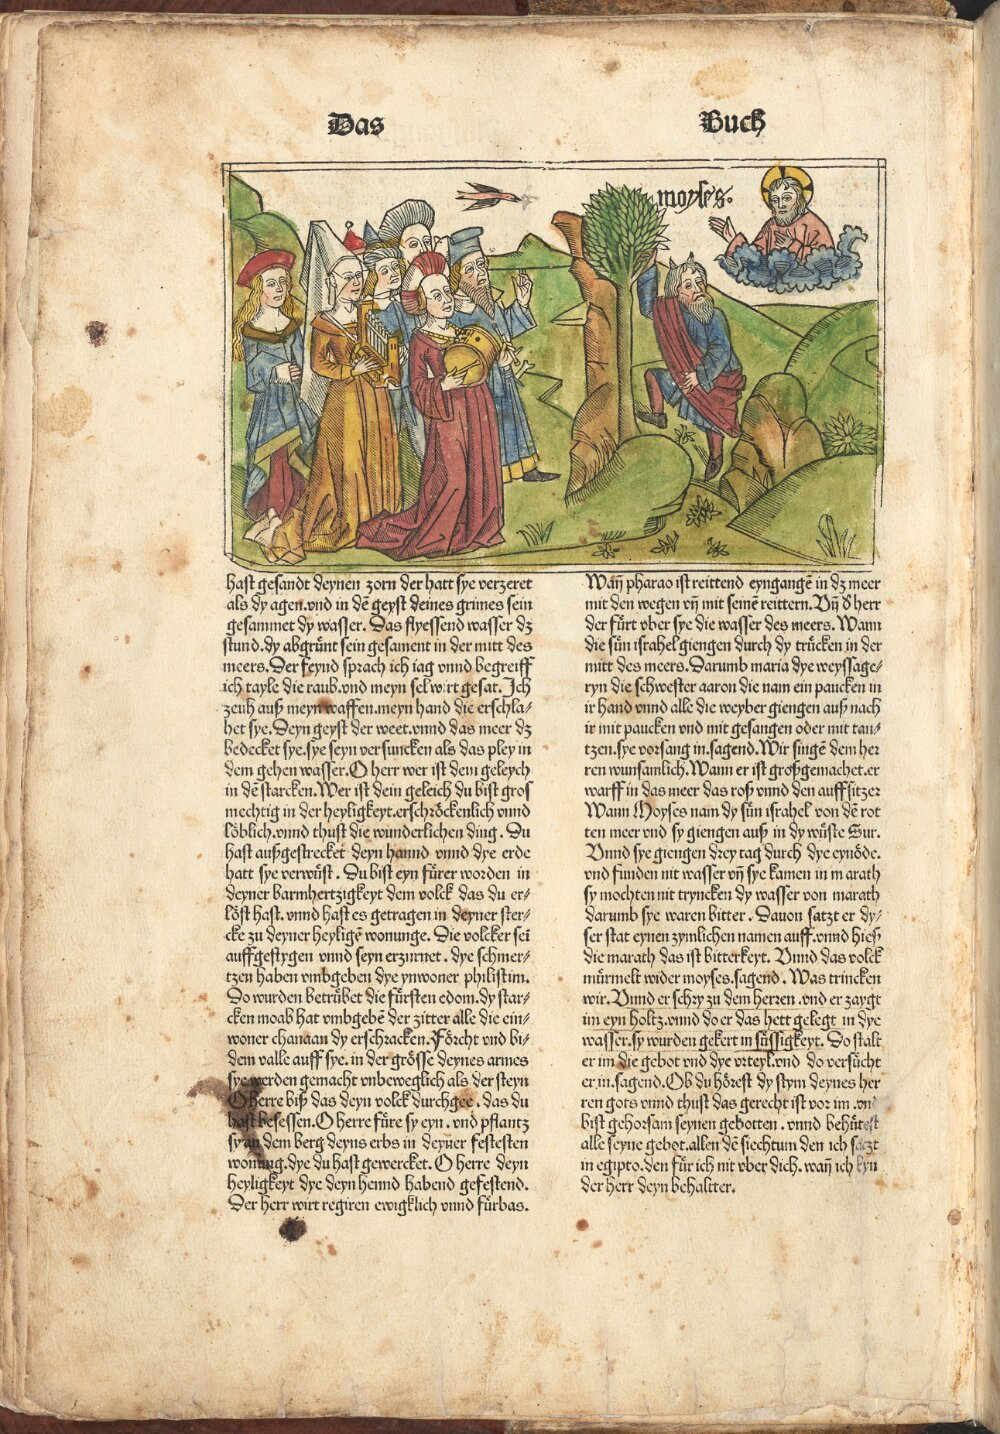 Das Buch
moyses.
hast gesandt deynen zorn der hatt sye verzeret
als dy agen.vnd in dē geyst deines grimes sein
gesammet dy wasser. Das flyessend wasser dz
stund.dy abgrünt sein gesament in der mitt des
meers.Der feynd sprach ich iag vnnd begreiff
ich tayle die raub.vnd meyn sel wirt gesat. Ich
zeuh auß meyn waffen.meyn hand die erschla⸗
het sye.Deyn geyst der weet.vnnd das meer dz
bedecket sye.sye seyn versuncken als das pley in
dem gehen wasser.O herr wer ist dem geleych
in dē starcken.Wer ist dein geleich du bist gros
mechtig in der heyligkeyt.erschröckenlich vnnd
löblich.vnnd thust die wunderlichen ding. Du
hast außgestrecket deyn hannd vnnd dye erde
hatt sye verwüst. Du bist eyn fürer worden in
deyner barmhertzigkeyt dem volck das du er⸗
löst hast.vnnd hast es getragen in deyner ster⸗
cke zu deyner heyligē wonunge. Die volcker sei
auffgestygen vnnd seyn erzürnet. dye schmer⸗
tzen haben vmbgeben dye ynwoner philistim.
Do wurden betrübet die fürsten edom.dy star⸗
cken moab hat vmbgebē der zitter alle die ein⸗
woner chanaan dy erschracken.Förcht vnd bi⸗
dem valle auff sye.in der grösse deynes armes
sye werden gemacht vnbeweglich als der steyn
O herre biß das deyn volck durchgee.das du
hast besessen.O herre füre sy eyn.vnd pflantz
sy an dem berg deyns erbs in deyner festesten
wonung.dye du hast gewercket.O herre deyn
heyligkeyt dye deyn hennd habend gefestend.
Der herr wirt regiren ewigklich vnnd fürbas.
Wañ pharao ist reittend eyngangē in dz meer
mit den wegen vñ mit seinnē reittern.Vñ d herr
der fürt vber sye die wasser des meers. Wann
die sün israhel giengen durch dy trücken in der
mitt des meers.Darumb maria dye weyssage⸗
ryn die schwester aaron die nam ein paucken in
ir hand vnnd alle die weyber giengen auß nach
ir mit paucken vnd mit gesangen oder mit tan⸗
tzen.sye vorsang in.sagend.Wir singē dem her
ren wunsamlich.Wann er ist großgemachet.er
warff in das meer das roß vnnd den auffsitzer
Wann Moyses nam dy sün israhel von dē rot
ten meer vnd sy giengen auß in dy wüste Sur.
Vnnd sye giengen drey tag durch dye eynöde.
vnd funden nit wasser vñ sye kamen in marath
sy mochten nit tryncken dy wasser von marath
darumb sye waren bitter. Dauon satzt er dy⸗
ser stat eynen zymlichen namen auff.vnnd hieß
die marath das ist bitterkeyt. Vnnd das volck
mürmelt wider moyses.sagend. Was trincken
wir.Vnnd er schry zu dem herren.vnd er zaygt
im eyn holtz.vnnd do er das hett gelegt in dye
wasser.sy wurden gekert in süssigkeyt. Do stalt
er im die gebot vnd dye vrteyl.vnd do versücht
er in.sagend.Ob du hörest dy stym deynes her
ren gots vnnd thust das gerecht ist vor im.vnd
bist gehorsam seynen gebotten.vnnd behütest
alle seyne gebot.allen dē siechtum den ich satzt
in egipto.den für ich nit vber dich.wañ ich byn
der herr deyn behaltter.